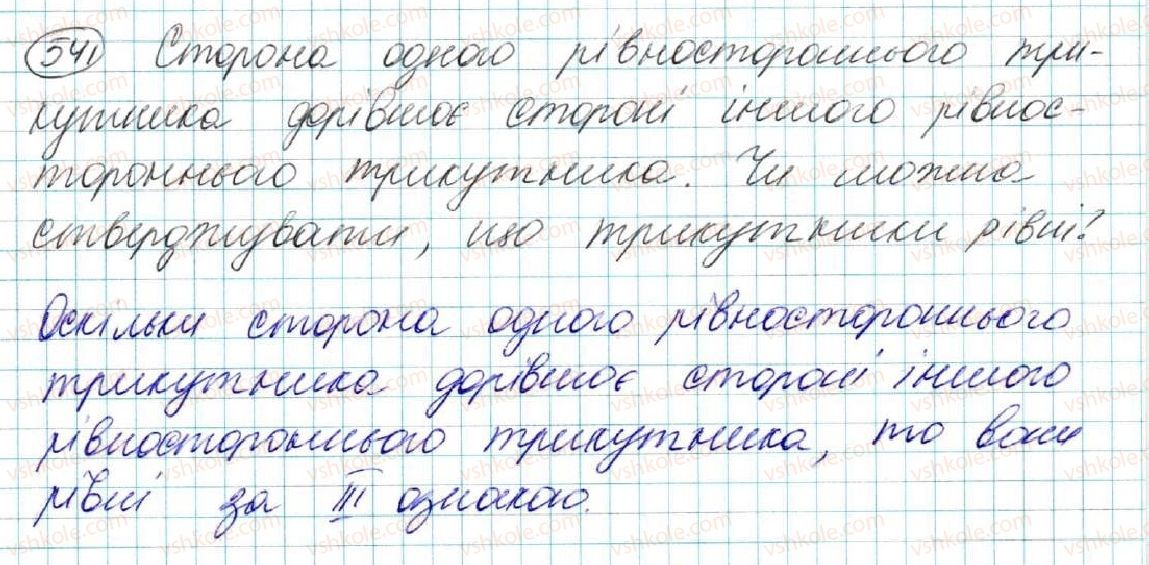 541 Сторона одного рівностороннього три-
кутника дорівнює стороні іншого рівнос-
тороннього трикутника. Чи можна
стверджувати, що трикутники рівні?
Оскільки сторона одного рівностороннього
трикутника дорівнює стороні іншого
рівностороннього трикутника, то вони
рівні за III ознакою.